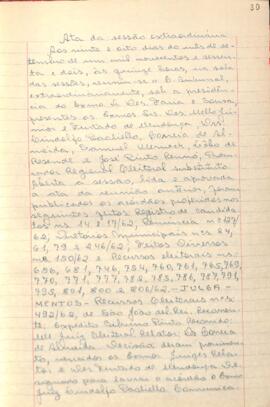 30
Ata da sessão extraordinária
Aos vinte e oito dias do mês de se-
tembro de um mil novecentos e sessen-
ta e dois, às quinze horas, na sala
das sessões, reuniu-se o E. Tribunal,
extraordinariamente, sob a presidên-
cia do Exmo. Sr. Des. Faria e Sousa,
presentes os Exmos. Srs. Des. Mello Jú-
nior e Furtado de Mendonça, Drs.
Lindolfo Paoliello, Correia de Al-
meida, Samuel Werneck, João de
Resende e José Pinto Renno, Procu-
rador Regional Eleitoral substituto.
Aberta a sessão, lida e aprovada
a ata da reunião anterior, foram
publicados os acórdãos proferidos nos
seguintes feitos: Registro de candida-
tos nºs 14 e 17/62, Denúncia nº 127/
62, Diretórios Municipais nºs 84,
61, 79 e 246/62; Feitos Diversos
nº 150/62 e Recursos eleitorais nºs
656, 681, 746, 754, 760, 761, 765, 769,
770, 771, 777, 782, 785, 786, 787, 791,
795, 801, 800 e 806/62 - JULGA-
MENTOS - Recursos Eleitorais nºs
492/62, de São João del Rei. Recorren-
te, Expedito Pinto. Recorrido,
Juiz Eleitoral. Relator: Dr. Correia
de Almeida. Decisão: deram provimen-
to, vencidos os Exmos. Juízes Relator
e Des. Furtado de Mendonça. De-
signado para lavrar o acórdão o Exmo.
Juiz Lindolfo Paoliello. Comunica-